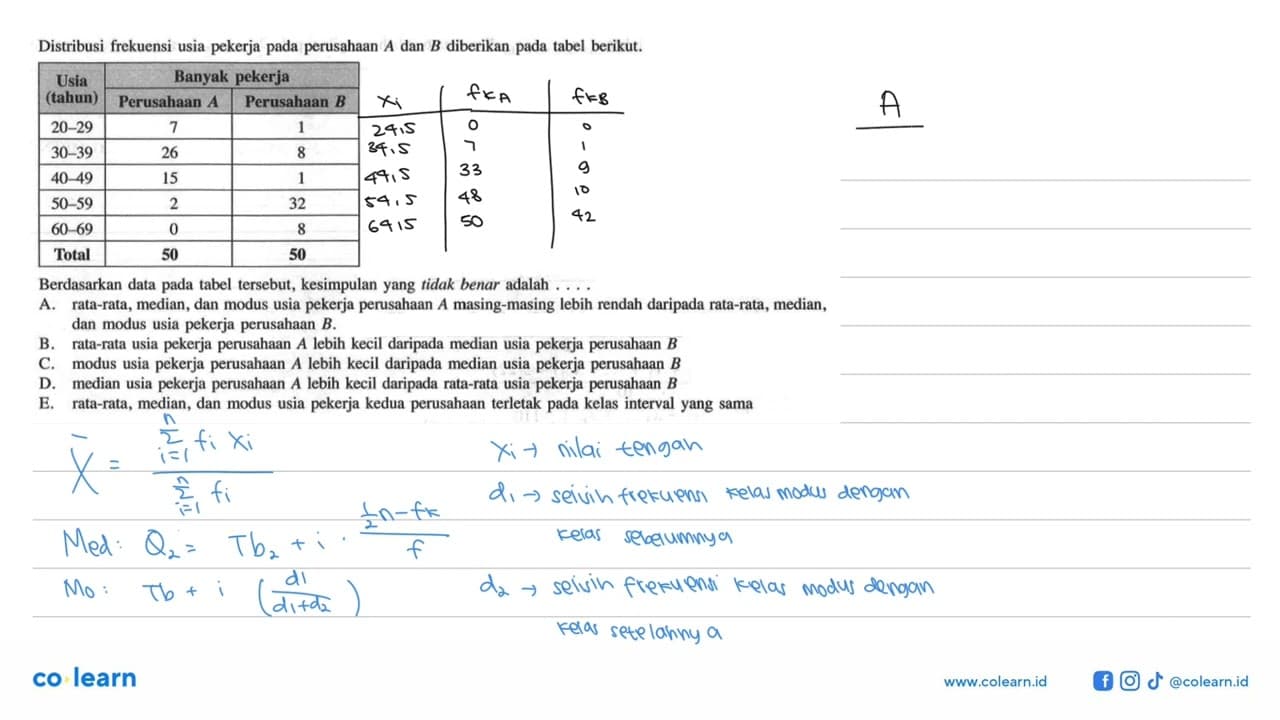 Distribusi frekuensi usia pekerja pada perusahaan A dan B diberikan pada tabel berikut.
Usia (tahun) Banyak pekerja
Perusahaan A Perusahaan B xi fkA fkB
20–29 7 1 24,5 0 0
30–39 26 8 34,5 7 1
40–49 15 1 44,5 33 9
50–59 2 32 54,5 48 10
60–69 0 8 64,5 50 42
Total 50 50
A
Berdasarkan data pada tabel tersebut, kesimpulan yang tidak benar adalah . . . .
A. rata-rata, median, dan modus usia pekerja perusahaan A masing-masing lebih rendah daripada rata-rata, median,
dan modus usia pekerja perusahaan B.
B. rata-rata usia pekerja perusahaan A lebih kecil daripada median usia pekerja perusahaan B
C. modus usia pekerja perusahaan A lebih kecil daripada median usia pekerja perusahaan B
D. median usia pekerja perusahaan A lebih kecil daripada rata-rata usia pekerja perusahaan B
E. rata-rata, median, dan modus usia pekerja kedua perusahaan terletak pada kelas interval yang sama
X̄ = n Σ i=1 fi xi / n Σ i=1 fi
xi → nilai tengah
d1 → selisih frekuensi kelas modus dengan
kelas sebelumnya
Med: Q2 = Tb2 + i . (1/2 n - fk) / f
Mo: Tb + i (d1 / d1+d2)
d2 → selisih frekuensi kelas modus dengan
kelas setelahnya
co learn
www.colearn.id
@colearn.id